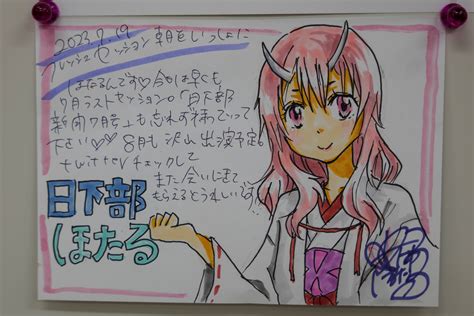 2023.7.19
フレッシュセッション 朝までいっしょに
ほたるんです♡ 今日は早くも
7月ラストセッション。「日下部
新聞7月号」も忘れずもってって
下さい♡♡ 8月も沢山出演予定。
twitterチェックして
また会いにきて
もらえるとうれしいです!!
日下部
ほたる